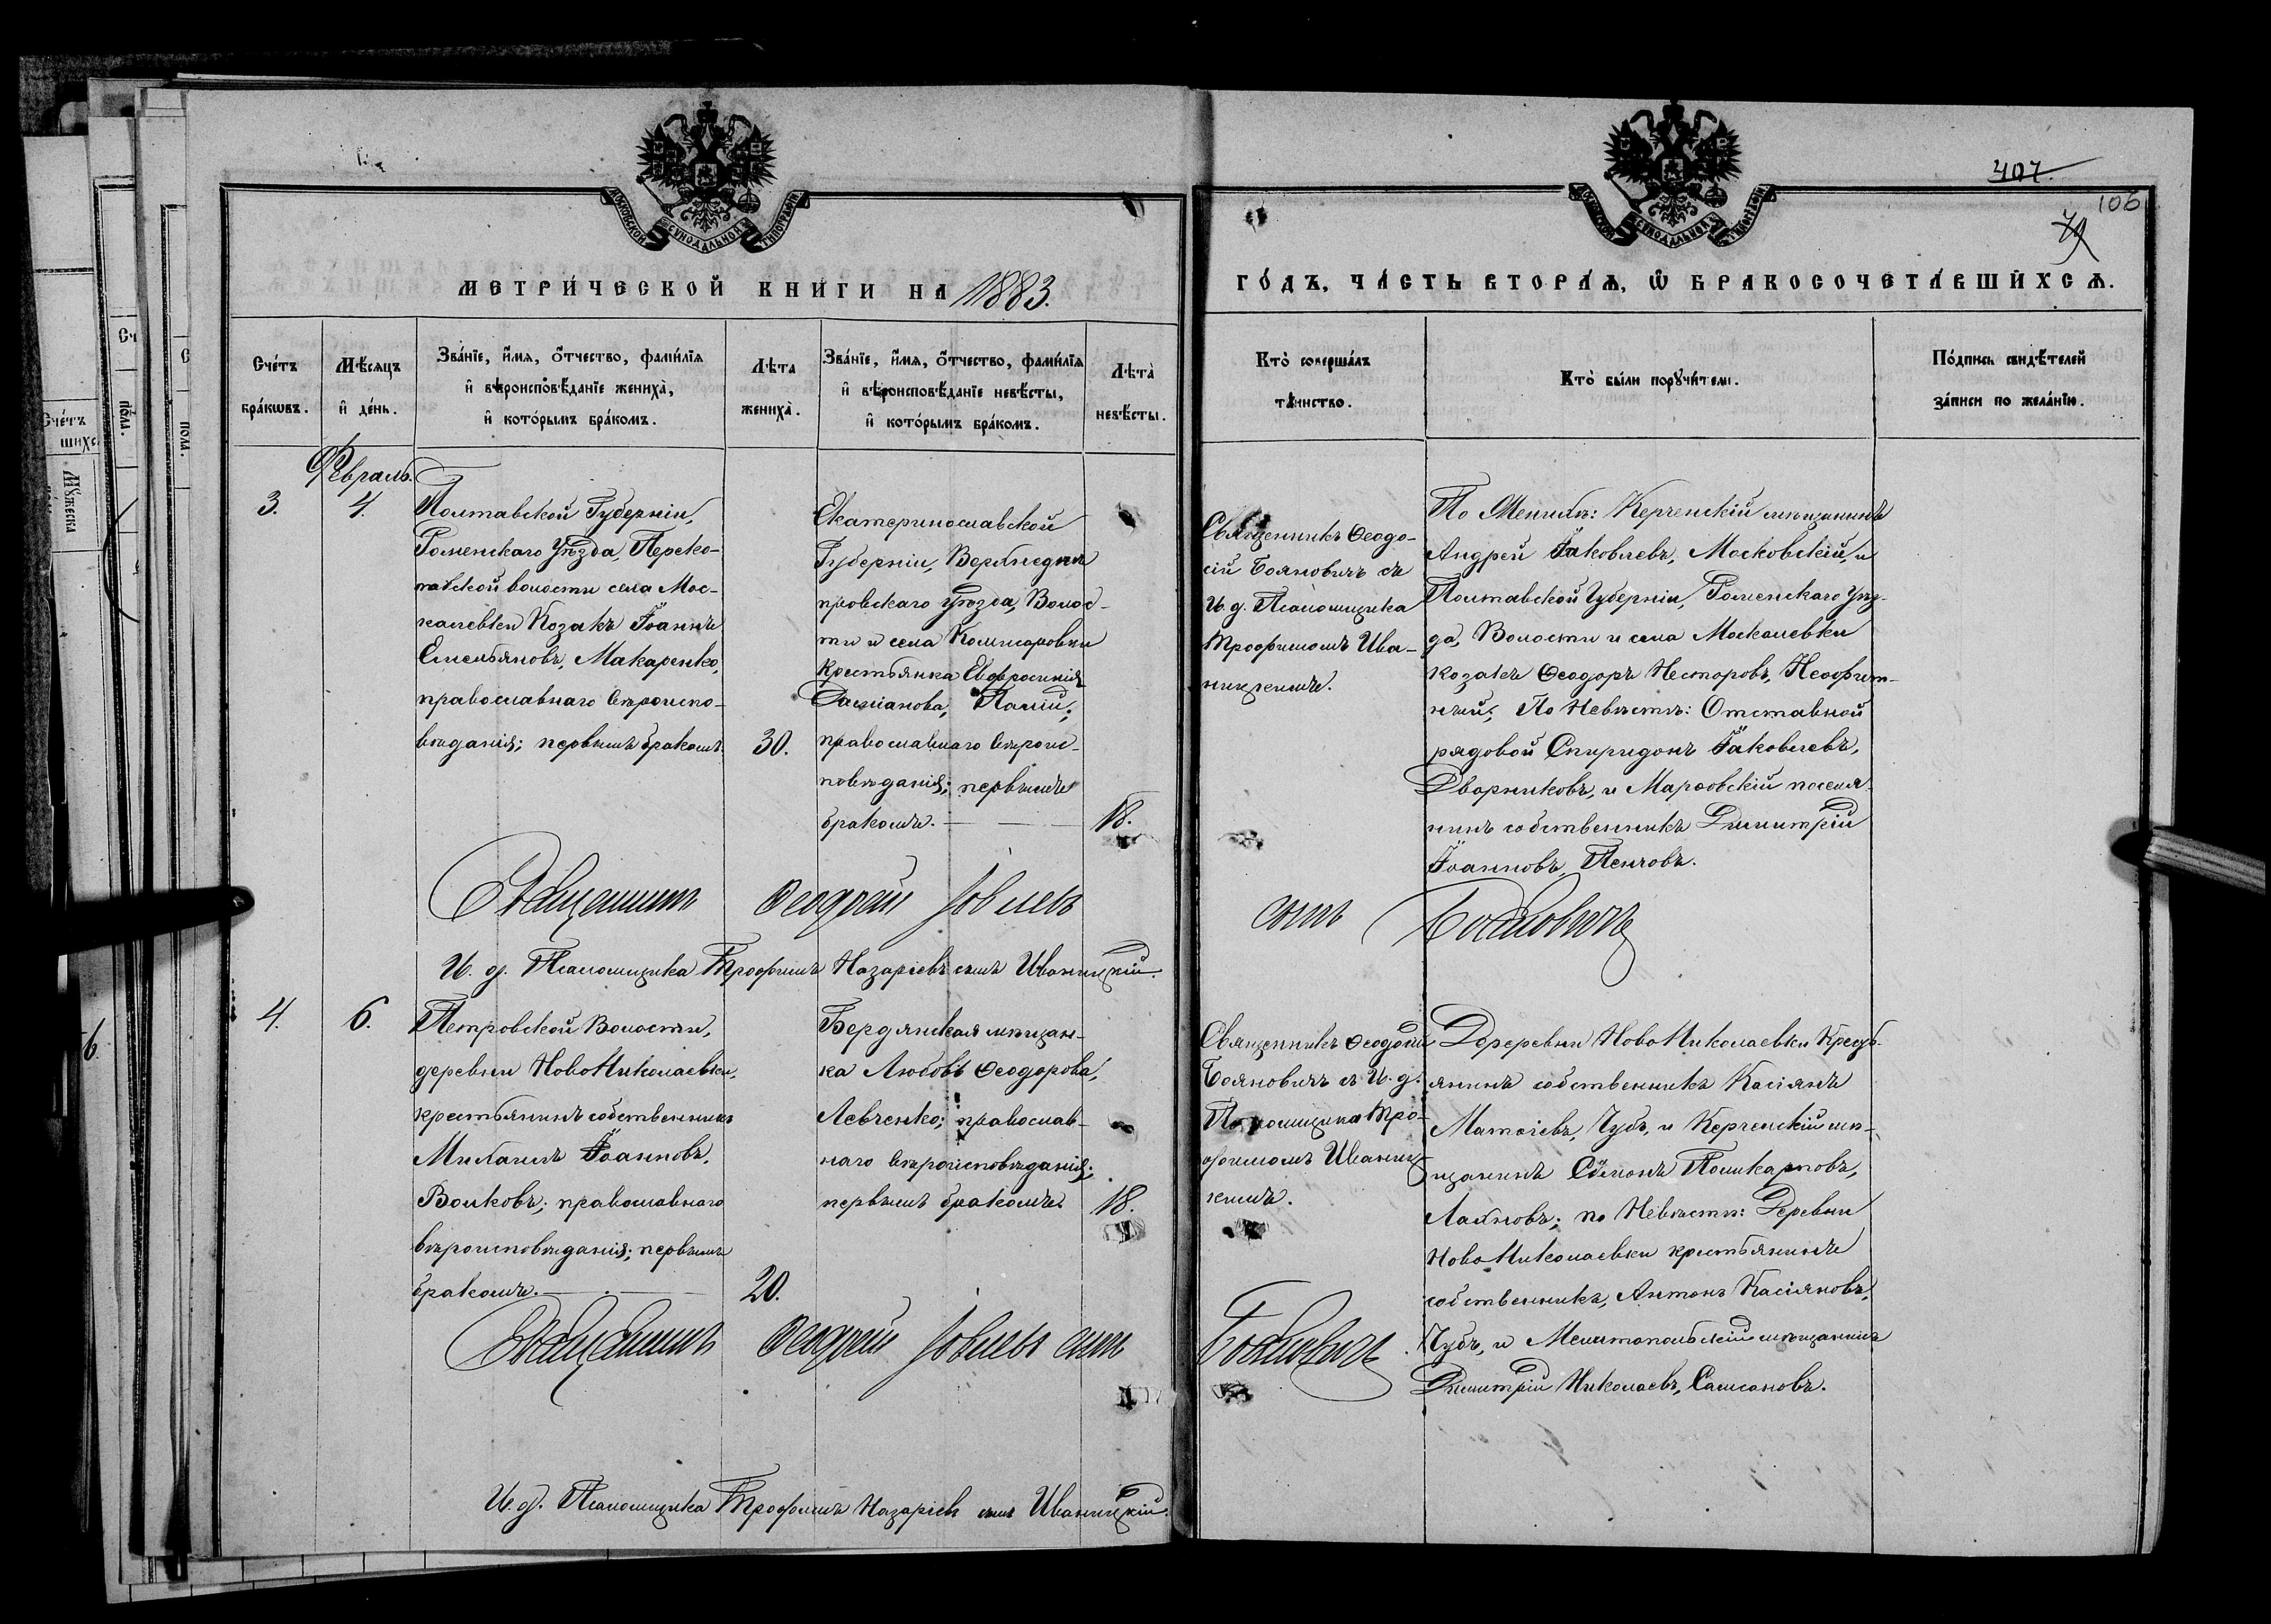 407.
106
79
МОСКОВСКОЙ СѴНОДАЛЬНОЙ ТИПОГРАФІИ
МОСКОВСКОЙ СѴНОДАЛЬНОЙ ТИПОГРАФІИ
МЕТРИ́ЧЕСКОЙ КНИГИ НА 1883.
ГО́ДЪ, ЧА́СТЬ ВТОРА́Ѧ, Ѡ҆ БРАКОСОЧЕТА́ВШИХСѦ.
Сче́тъ бра́кѡвъ.
Мѣ́сяцъ и҆ де́нь.
Зва́нїе, и҆́мѧ, ѻ҆́тчество, фами́лїѧ и҆ вѣроисповѣ́данїе жениха̀, и҆ кото́рымъ бра́комъ.
Лѣ́та жениха̀.
Зва́нїе, и҆́мѧ, ѻ҆́тчество, фами́лїѧ и҆ вѣроисповѣ́данїе невѣ́сты, и҆ кото́рымъ бра́комъ.
Лѣта̀ невѣ́сты.
Кто̀ соверша́лъ та́инство.
Кто̀ бы́ли порꙋчи́тели.
По́дпись свидѣ́телей за́писи по жела́нїю.
Февраль.
3.
4.
Полтавской Губерніи,
Роменскаго Уѣзда, Переко-
повской волости села Мос-
калевки Козакъ Іоаннъ
Емельяновъ, Макаренко,
православнаго вѣроиспо-
вѣданія; первымъ бракомъ.
30.
Екатеринославской
Губерніи, Верхнеднѣ
провскаго Уѣзда, Волос-
ти и села Комисаровки
Крестьянка Евфросинія
Даміанова,
православнаго вѣроис-
повѣданія; первымъ
бракомъ.
18.
Священникъ Ѳеодо-
сій Бояновичъ съ
И. д. Псаломщика
Трофимомъ Ива-
ницкимъ.
По Женихѣ: Керченскій мѣщанинъ
Андрей Іаковлевъ, Московскій, и
Полтавской Губерніи, Роменскаго Уѣз-
да, Волости и села Москалевки
козакъ Ѳеодоръ Несторовъ, Неофит-
ный; По Невѣстѣ: Отставной
рядовой Спиридонъ Іаковлевъ,
Дворниковъ, и Марфовскій поселя-
нинъ собственникъ Димитрій
Іоанновъ, Пенчовъ.
Священникъ Ѳеодосій Іовлевъ сынъ Бояновичъ
И. д. Псаломщика Трофимъ Назаріевъ сынъ Иваницкій.
4.
6.
Петровской Волости,
деревни НовоНиколаевки,
крестьянинъ собственникъ
Михаилъ Іоанновъ,
Волковъ; православнаго
вѣроисповѣданія; первымъ
бракомъ.
20.
Бердянская мѣщан-
ка Любовь Ѳеодорова,
Левченко; православ-
наго вѣроисповѣданія;
первымъ бракомъ.
18.
Священникъ Ѳеодосій
Бояновичъ съ И. д.
Псаломщика Тро-
фимомъ Иваниц-
кимъ.
Деревни НовоНиколаевки Кресть-
янинъ собственникъ Касіянъ
Матѳіевъ, Чубъ, и Керченскій мѣ-
щанинъ Симонъ Поликарповъ,
Лахновъ; по Невѣстѣ: Деревни
НовоНиколаевки крестьянинъ
собственникъ, Антонъ Касіяновъ,
Чубъ, и Мелитопольскій мѣщанинъ
Димитрій Николаевъ, Самсоновъ.
Священникъ Ѳеодосій Іовлевъ сынъ Бояновичъ
И. д. Псаломщика Трофимъ Назаріевъ сынъ Иваницкій.